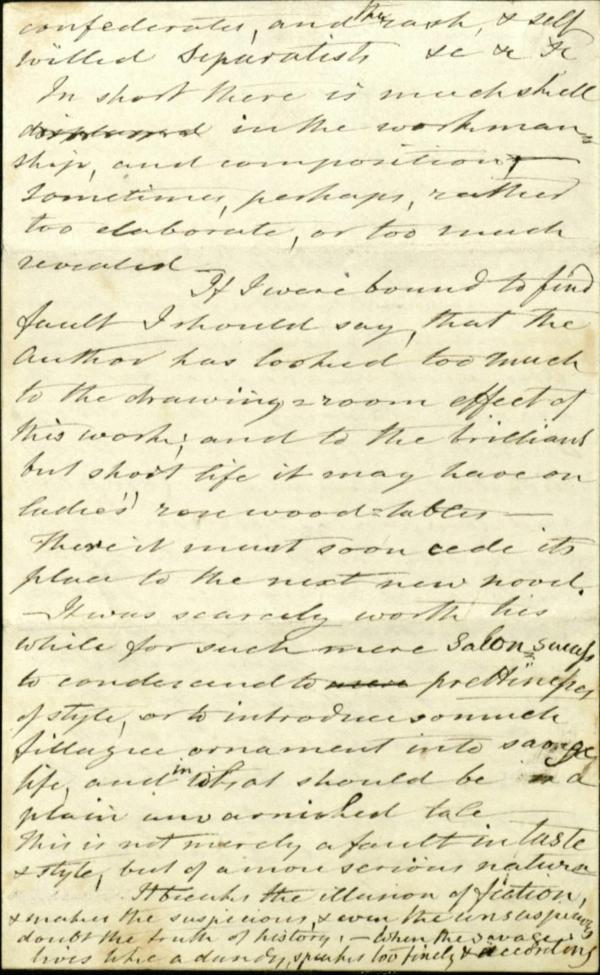 confederates, and the rash, & self
willed Separatists &c &c &c
In short there is much skill
displayed in the workman=
ship, and composition,—
sometimes, perhaps, rather
too elaborate, or too much
revealed —
If I were bound to find
fault I should say, that the
Author has looked too much
to the drawing=room effect of
this work; and to the brilliant
but short life it may have on
ladies' rose wood=tables —
There it must soon cede its
place to the next new novel.
—It was scarcely worth his
while for such mere Salon=
to condescend to mere prettinesses
of style, or to introduce so much
fillagree ornament into savage
life, and in what should be a
plain unvarnished tale
This is not merely a fault in taste
& style, but of a more serious nature
It breaks the illusion of fiction,
& makes the suspicious, & even the unsuspicious
doubt the truth of history; — When the savage
lives like a dandy, speaks too finely & according